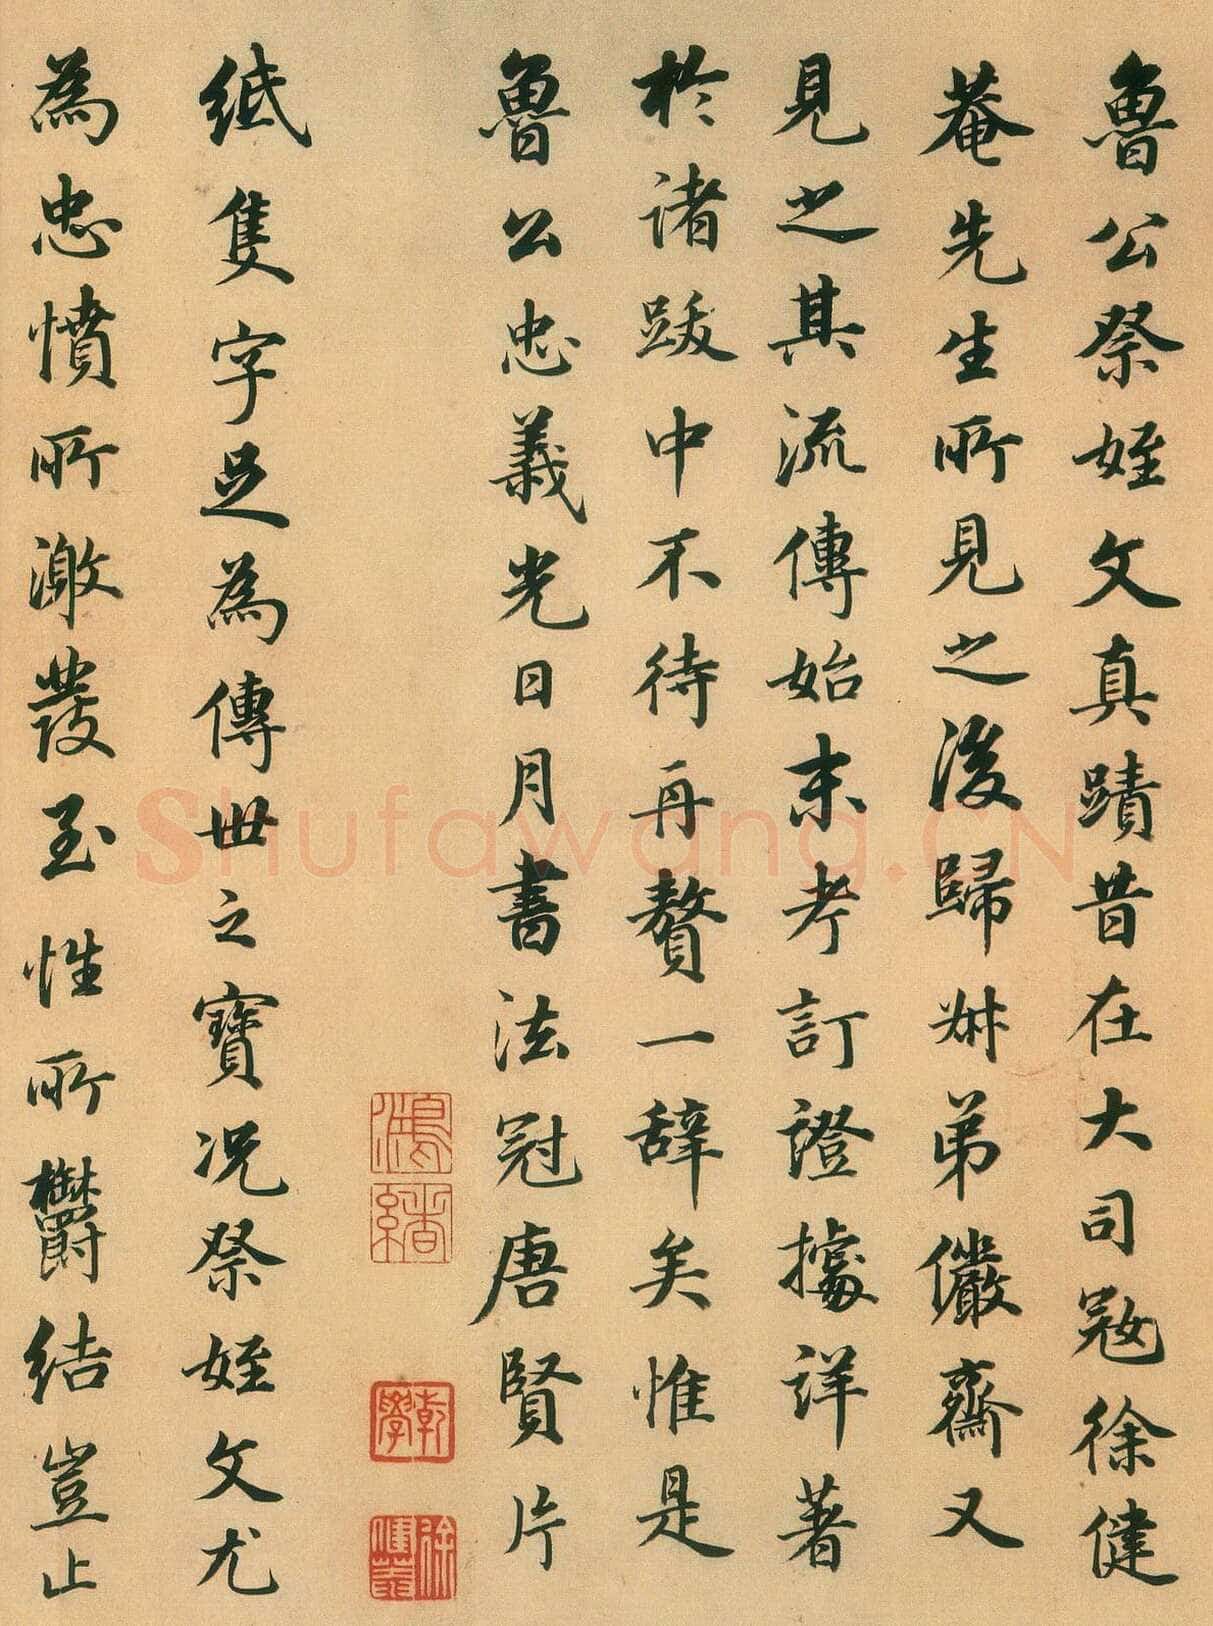 魯公祭姪文真蹟昔在大司寇徐健
菴先生所見之後歸淋弟儼齋又
見之其流傳始末考訂證據詳著
於諸跋中不待再贅一辞矣惟是
魯公忠義光日月書法冠唐賢片
紙隻字足為傳世之寶況祭姪文尤
為忠憤所激發至性所鬱結豈止
鴻緒
乾學
徐健菴
Shufawang.CN